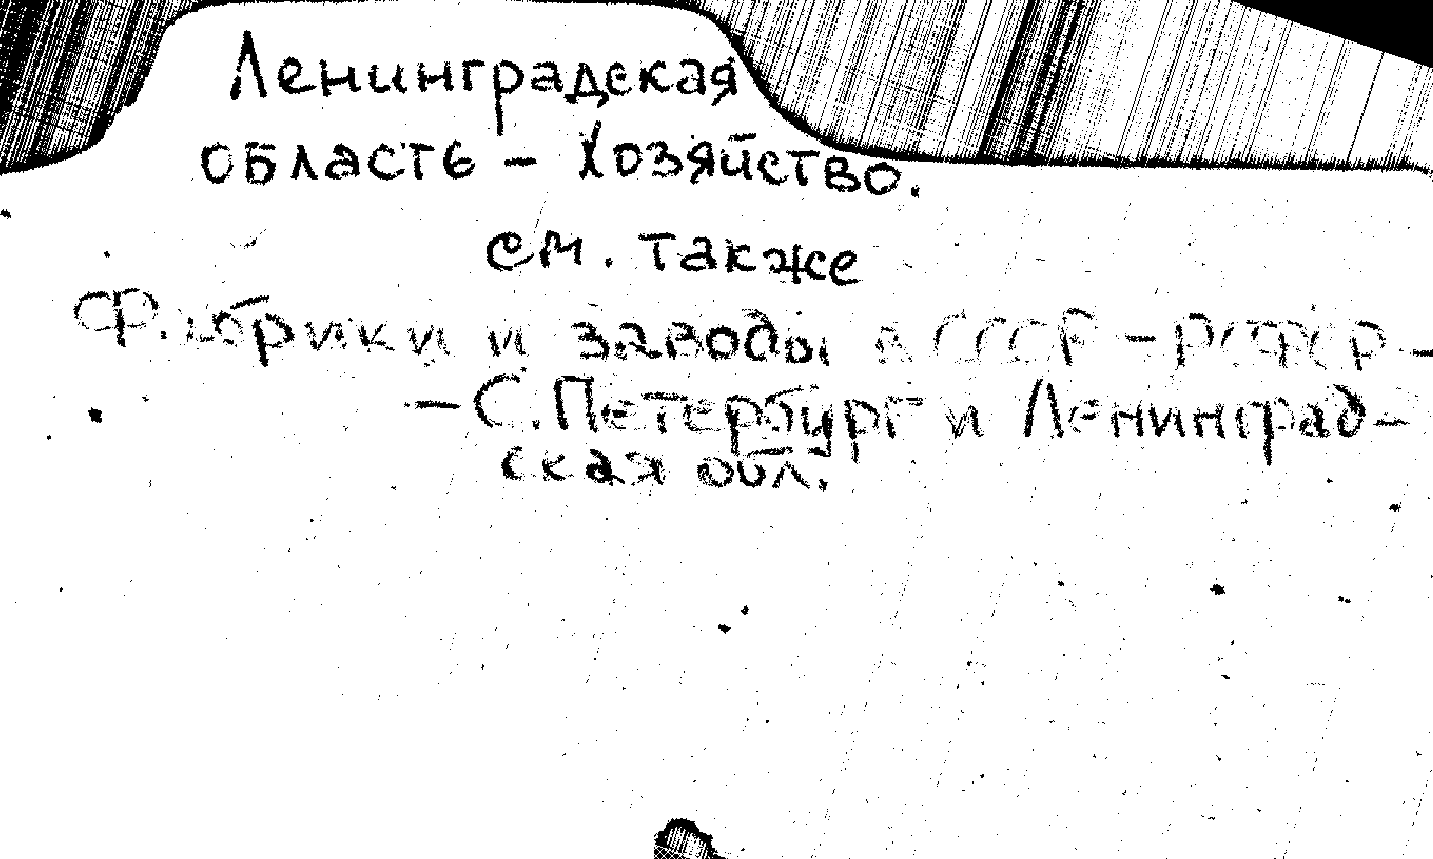 Ленинградская
область - Хозяйство.
см. также
Фабрики и заводы в СССР - РСФСР -
- С.Петербург и Ленинград-
ская обл.